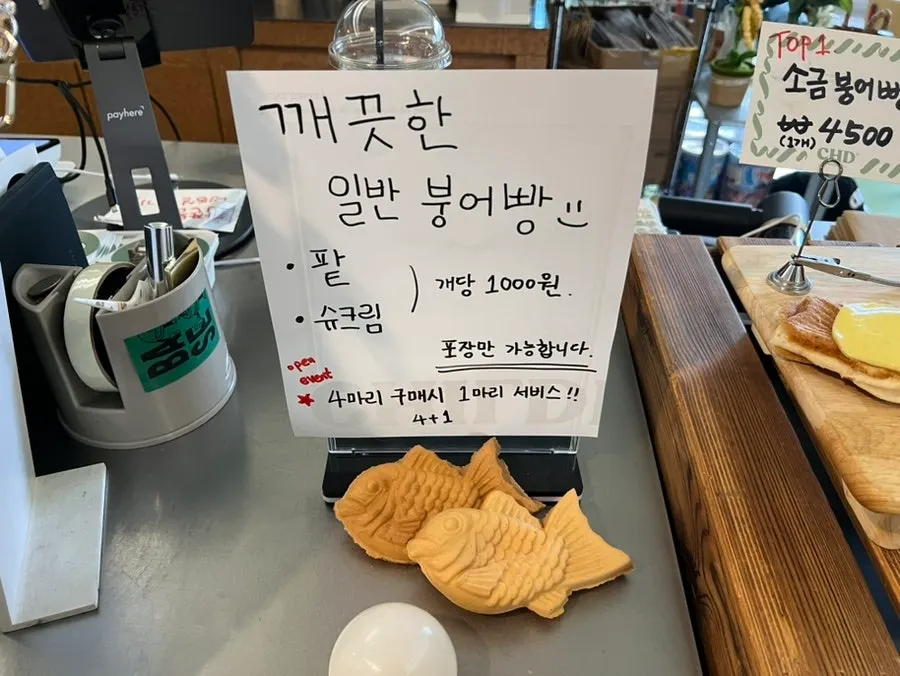 깨끗한
일반 붕어빵
• 팥
• 슈크림
개당 1000원.
포장만 가능합니다.
open
event
★ 4마리 구매시 1마리 서비스!!
4+1
TOP 1
소금 붕어빵
(1개) 4500
CHD
payhere
BASE